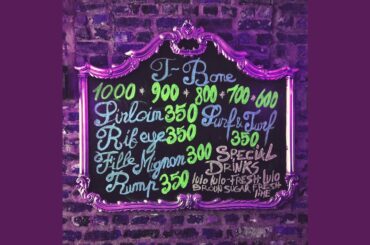 T-Bone
1000 • 900 • 800 • 700 • 600
Sirloin 350
Rib eye 350
Fille Mignon 300
Rump 350
Surf & Turf
350
SPECIAL
DRINKS
lulo lulo - FRESH lulo
BROWN SUGAR FRESH
LIME